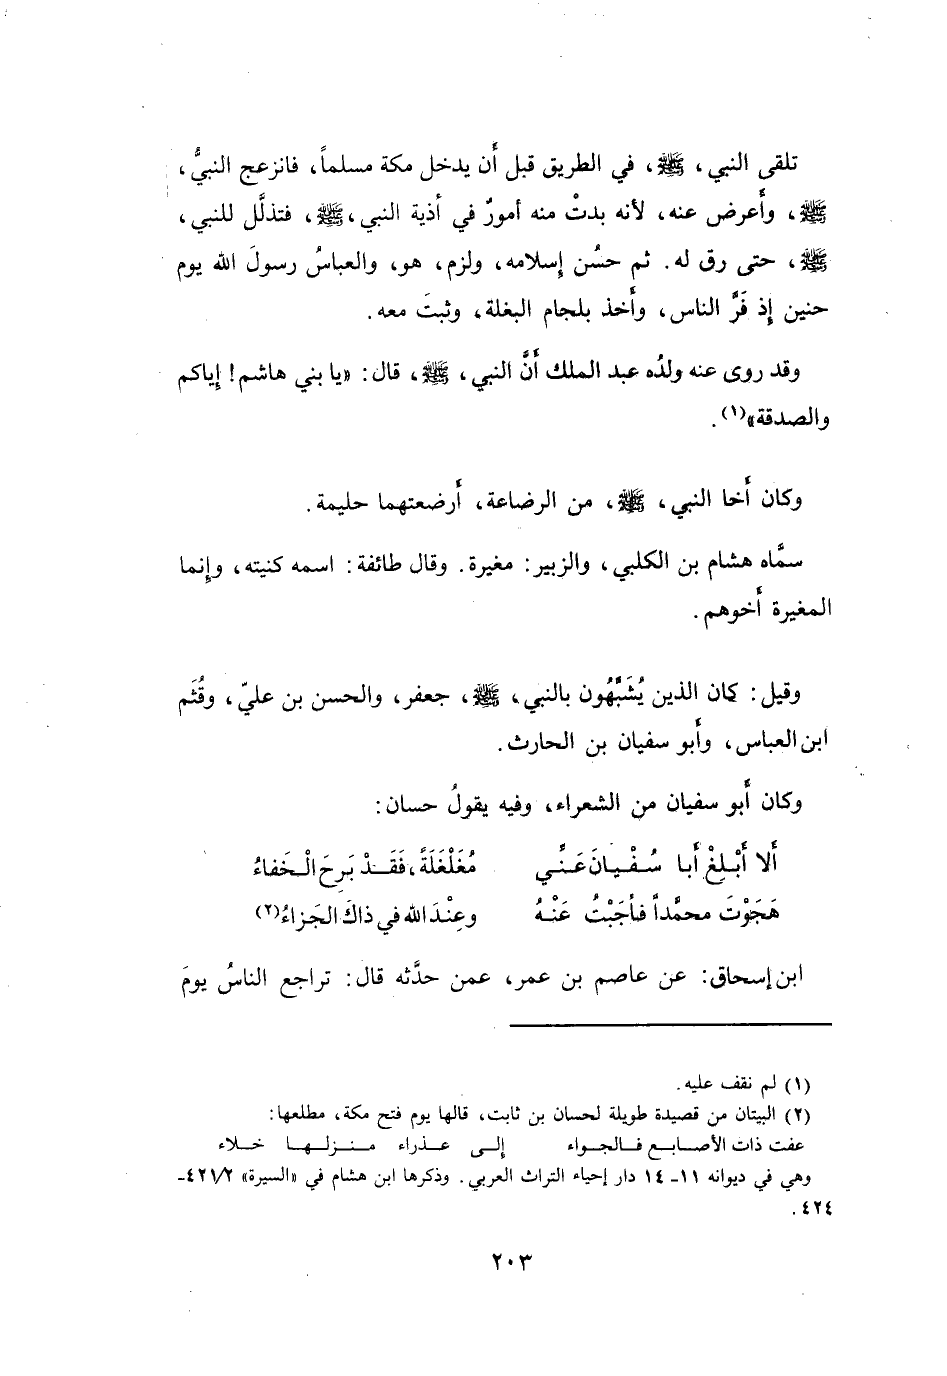 تلقى النبي، ﷺ، في الطريق قبل أن يدخل مكة مسلماً، فانزعج النبيُّ،
ﷺ، وأعرض عنه، لأنه بدتْ منه أمورٌ في أذية النبي، ﷺ، فتذلَّل للنبي،
ﷺ، حتى رق له. ثم حسُن إسلامه، ولزم، هو، والعباسُ رسولَ الله يوم
حنين إذ فَرَّ الناس، وأخذ بلجام البغلة، وثبتَ معه.
وقد روى عنه ولدُه عبد الملك أنَّ النبي، ﷺ، قال: «يا بني هاشم! إياكم
والصدقة»(١).
وكان أخا النبي، ﷺ، من الرضاعة، أرضعتهما حليمة.
سمَّاه هشام بن الكلبي، والزبير: مغيرة. وقال طائفة: اسمه كنيته، وإنما
المغيرة أخوهم.
وقيل: كان الذين يُشَبَّهُون بالنبي، ﷺ، جعفر، والحسن بن عليّ، وقُثَم
ابن العباس، وأبو سفيان بن الحارث.
وكان أبو سفيان من الشعراء، وفيه يقولُ حسان:
ألا أَبْلِغْ أبا سُفْيانَ عَنِّي مُغَلْغَلَةً، فَقَدْ بَرِحَ الْخَفاءُ
هَجَوْتَ محمَّداً فأجَبْتُ عَنْهُ وعِنْدَ الله في ذاكَ الجَزاءُ(٢)
ابن إسحاق: عن عاصم بن عمر، عمن حدَّثه قال: تراجع الناسُ يومَ
(١) لم نقف عليه.
(٢) البيتان من قصيدة طويلة لحسان بن ثابت، قالها يوم فتح مكة، مطلعها:
عفت ذات الأصابع فالجواء إلى عذراء منزلها خلاء
وهي في ديوانه ١١ـ ١٤ دار إحياء التراث العربي. وذكرها ابن هشام في «السيرة» ٤٢١/٢ـ
٤٢٤.
٢٠٣